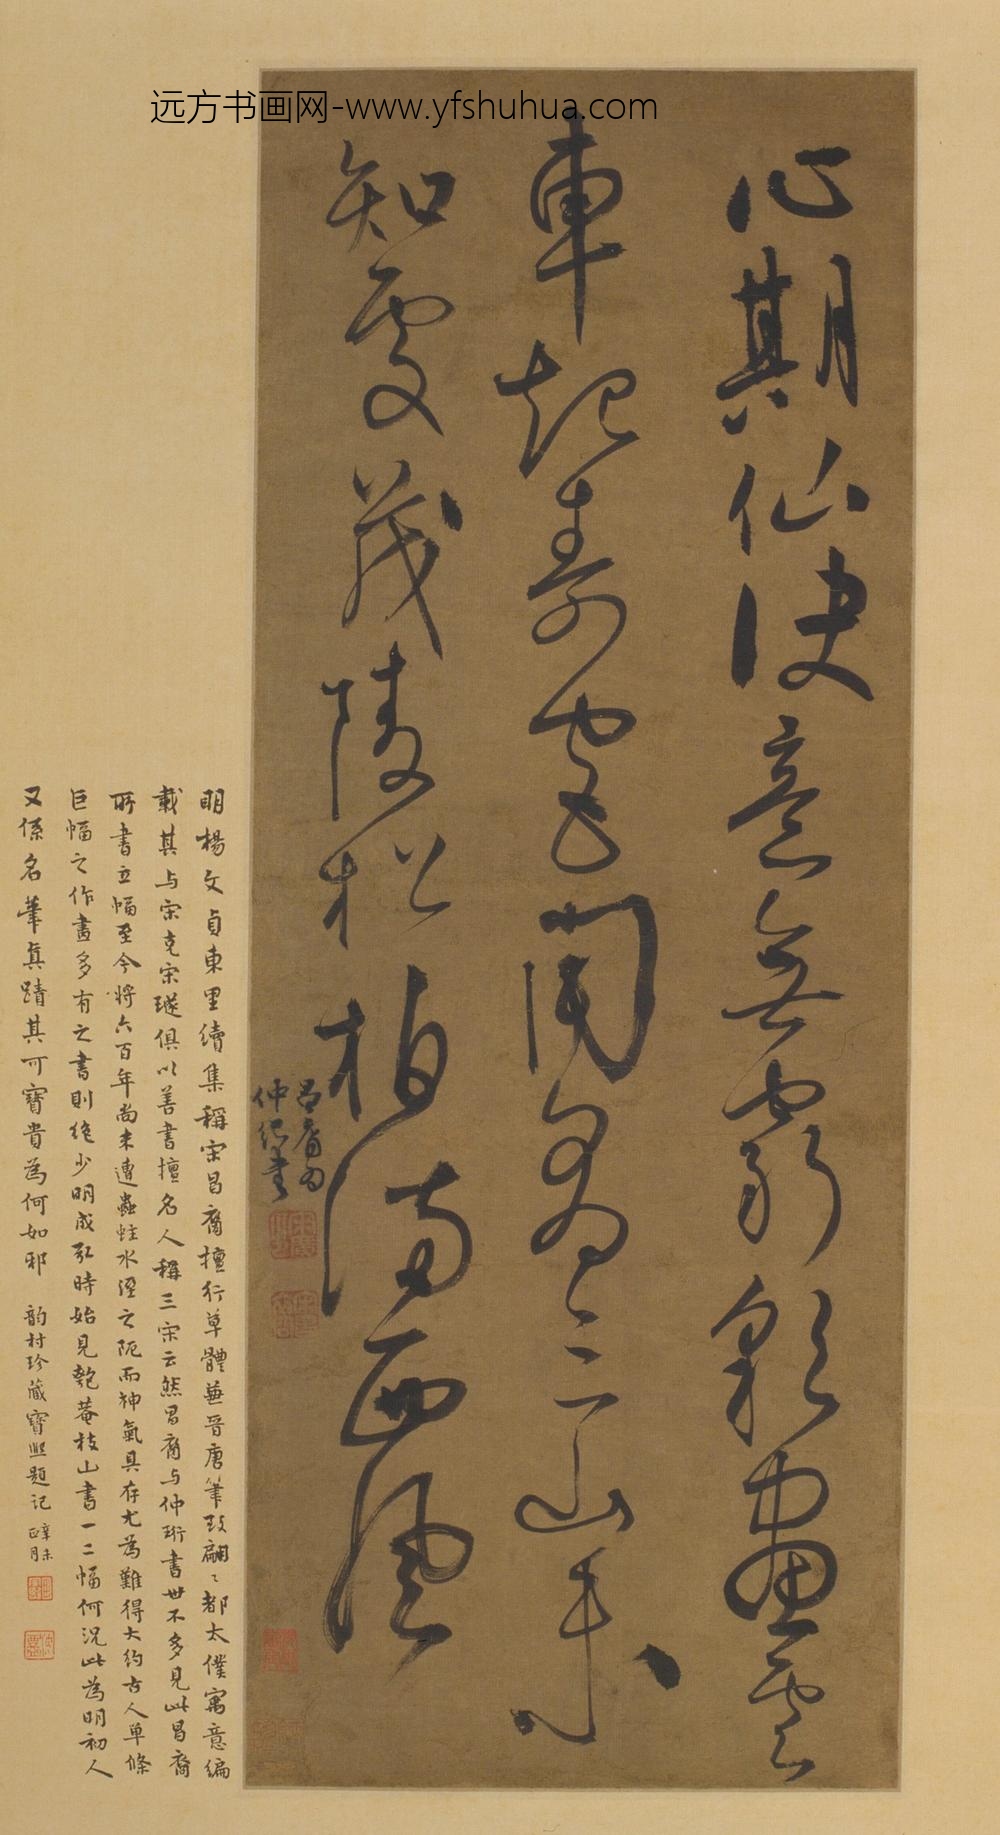 远方书画网-www.yfshuhua.com
心期仙訣意無窮彩畫雲
車起壽宮聞有三山未
知處茂陵松柏滿西風
昌裔為
仲書
明楊文貞東里續集稱宋昌裔擅行草體兼晉唐筆致翩〻都太僕寓意編
載其与宋克宋璲俱以善書擅名人稱三宋云然昌裔与仲珩書世不多見此昌裔
所書立幅至今將六百年尚未遭蟲蛀水溼之阨而神氣具存尤為難得大約古人單條
巨幅之作畫多有之書則絶少明成弘時始見匏菴枝山書一二幅何況此為明初人
又係名筆真蹟其可寶貴為何如邪 韵村珍藏寶熙題記 辛未正月